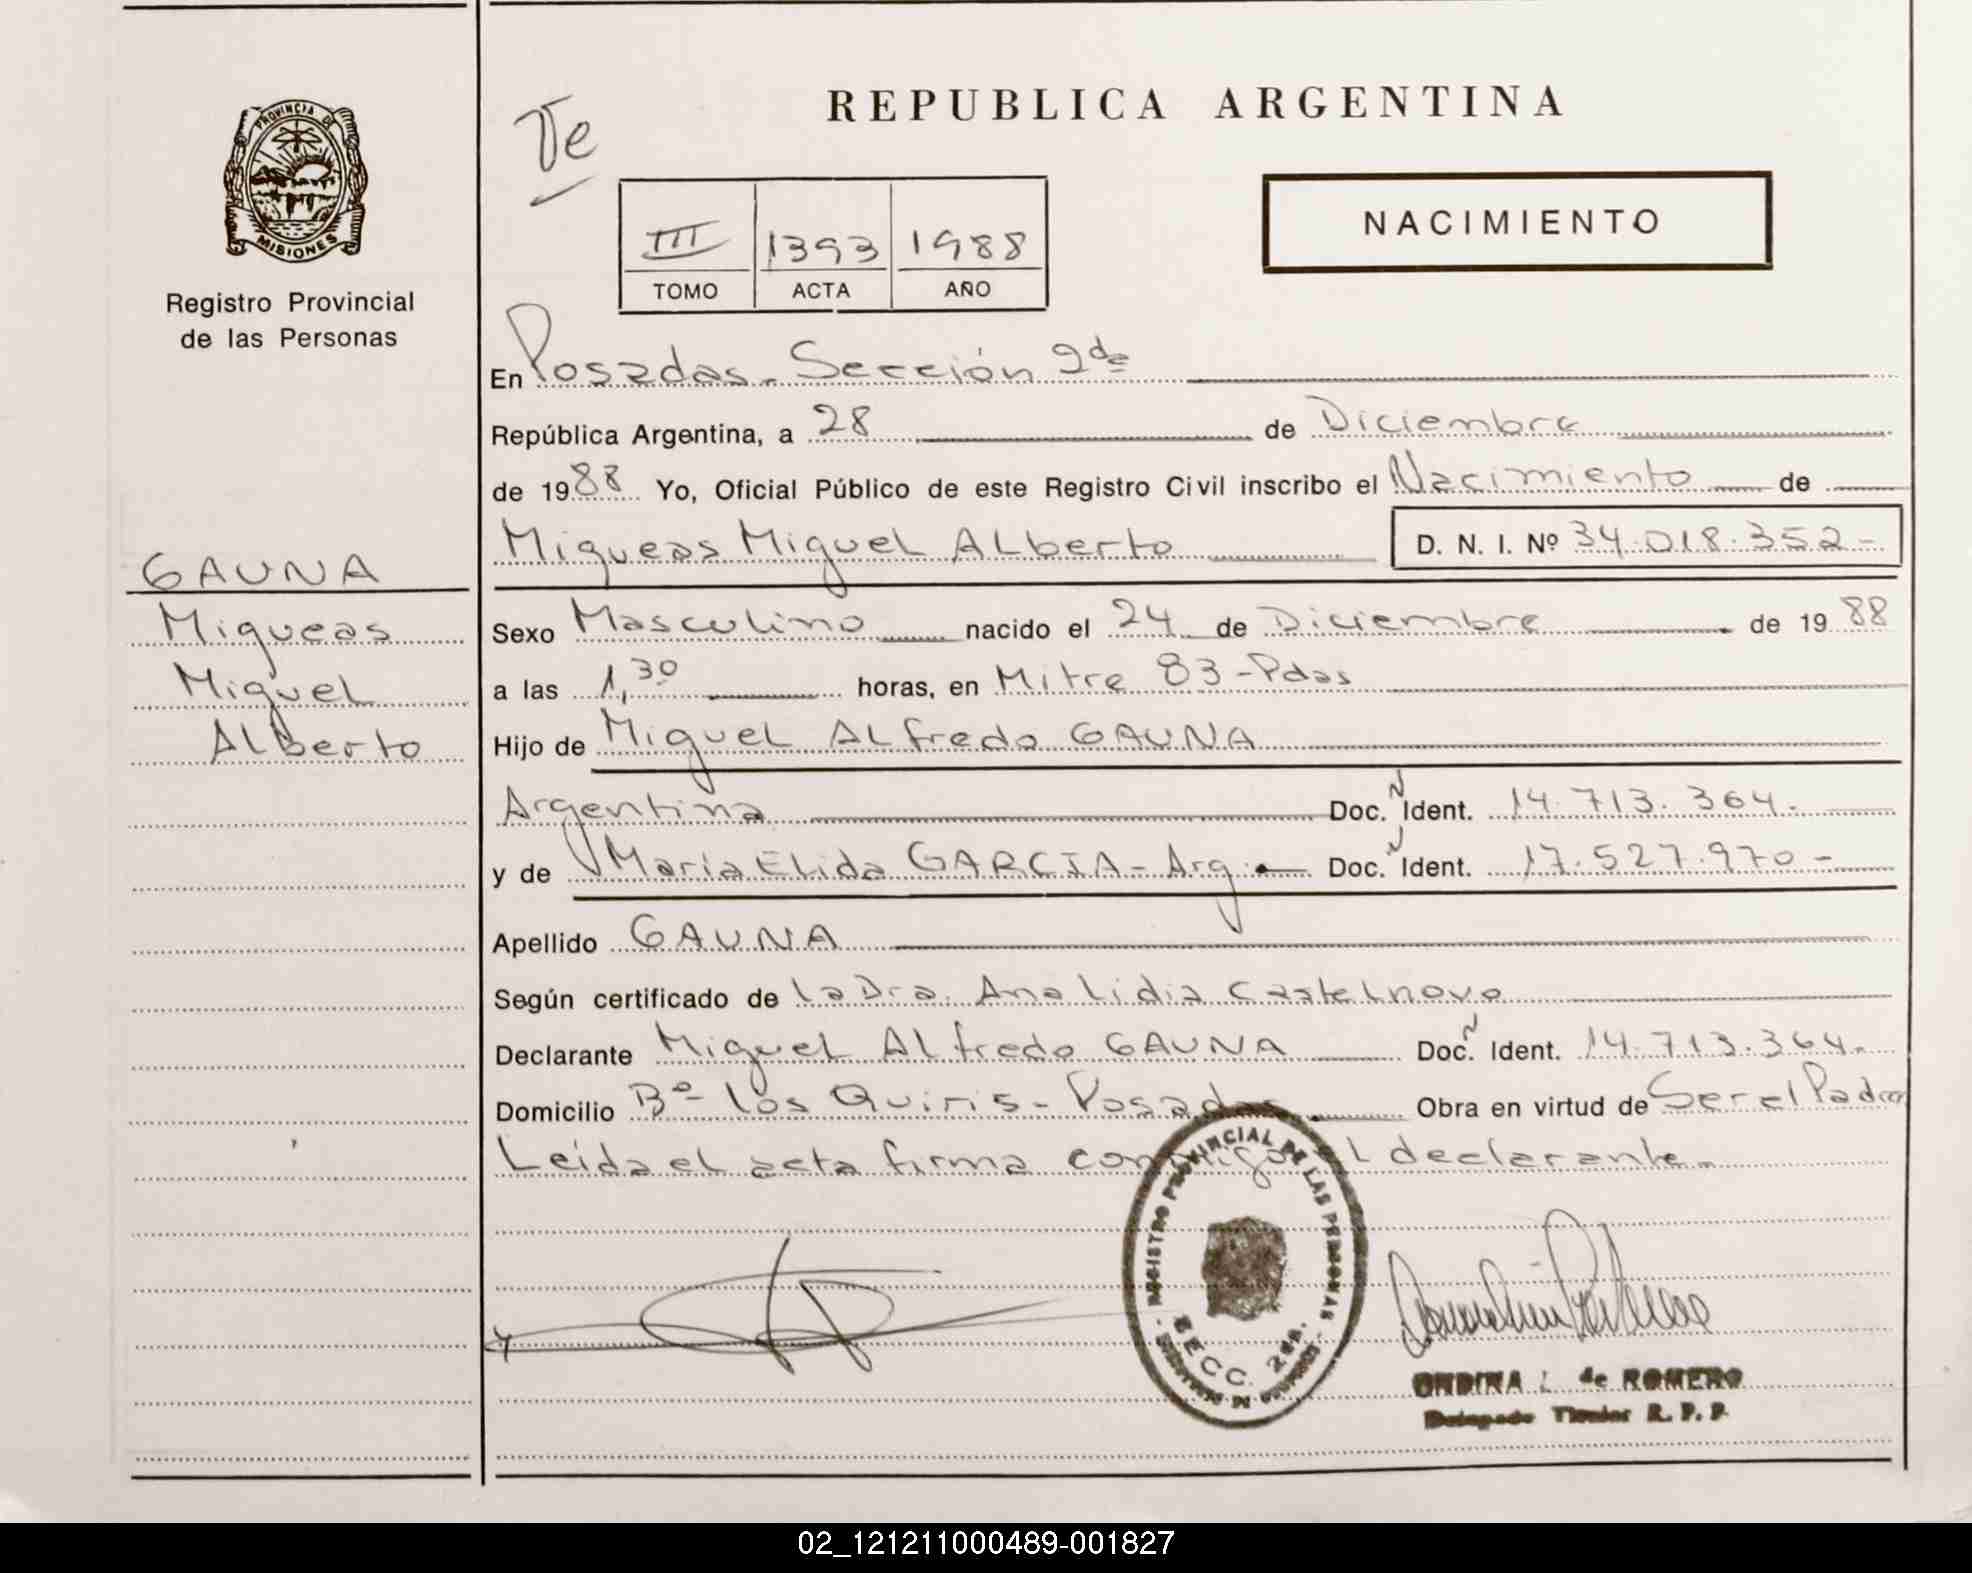 REPUBLICA ARGENTINA
Ve
PROVINCIA DE MISIONES
Registro Provincial
de las Personas
NACIMIENTO
III 1393 1988
TOMO ACTA AÑO
En Posadas - Sección 2da
República Argentina, a 28 de Diciembre
de 1988 Yo, Oficial Público de este Registro Civil inscribo el Nacimiento de
Miqueas Miguel Alberto D. N. I. Nº 34.018.352-
GAUNA
Miqueas
Miguel
Alberto
Sexo Masculino nacido el 24 de Diciembre de 1988
a las 1,30 horas, en Mitre 83 - Pdas
Hijo de Miguel Alfredo GAUNA
Argentina Doc. N Ident. 14.713.364.-
y de María Elida GARCIA - Arg. Doc. N Ident. 17.527.970-
Apellido GAUNA
Según certificado de la Dra. Ana Lidia Castelnovo
Declarante Miguel Alfredo GAUNA Doc. N Ident. 14.713.364.-
Domicilio Bº Los Quiris - Posadas Obra en virtud de Ser el Padre
Leida el acta firma conmigo el declarante.
REGISTRO PROVINCIAL DE LAS PERSONAS
SECC. 2da.
ONDINA de ROMERO
Delegado Titular R. P. P.
02_121211000489-001827